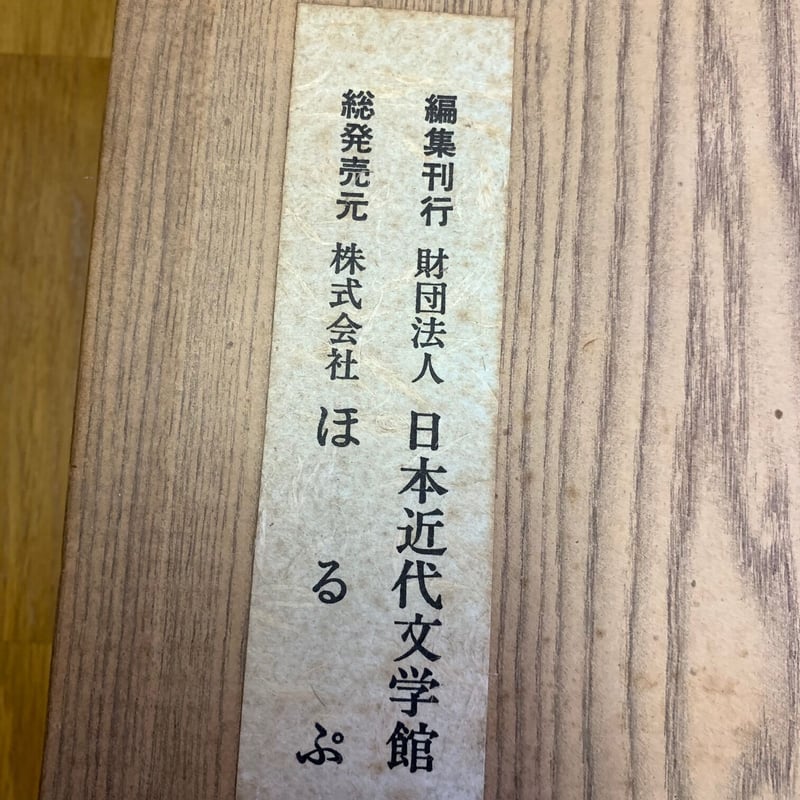 編集刊行 財団法人 日本近代文学館
総発売元 株式会社 ほるぷ